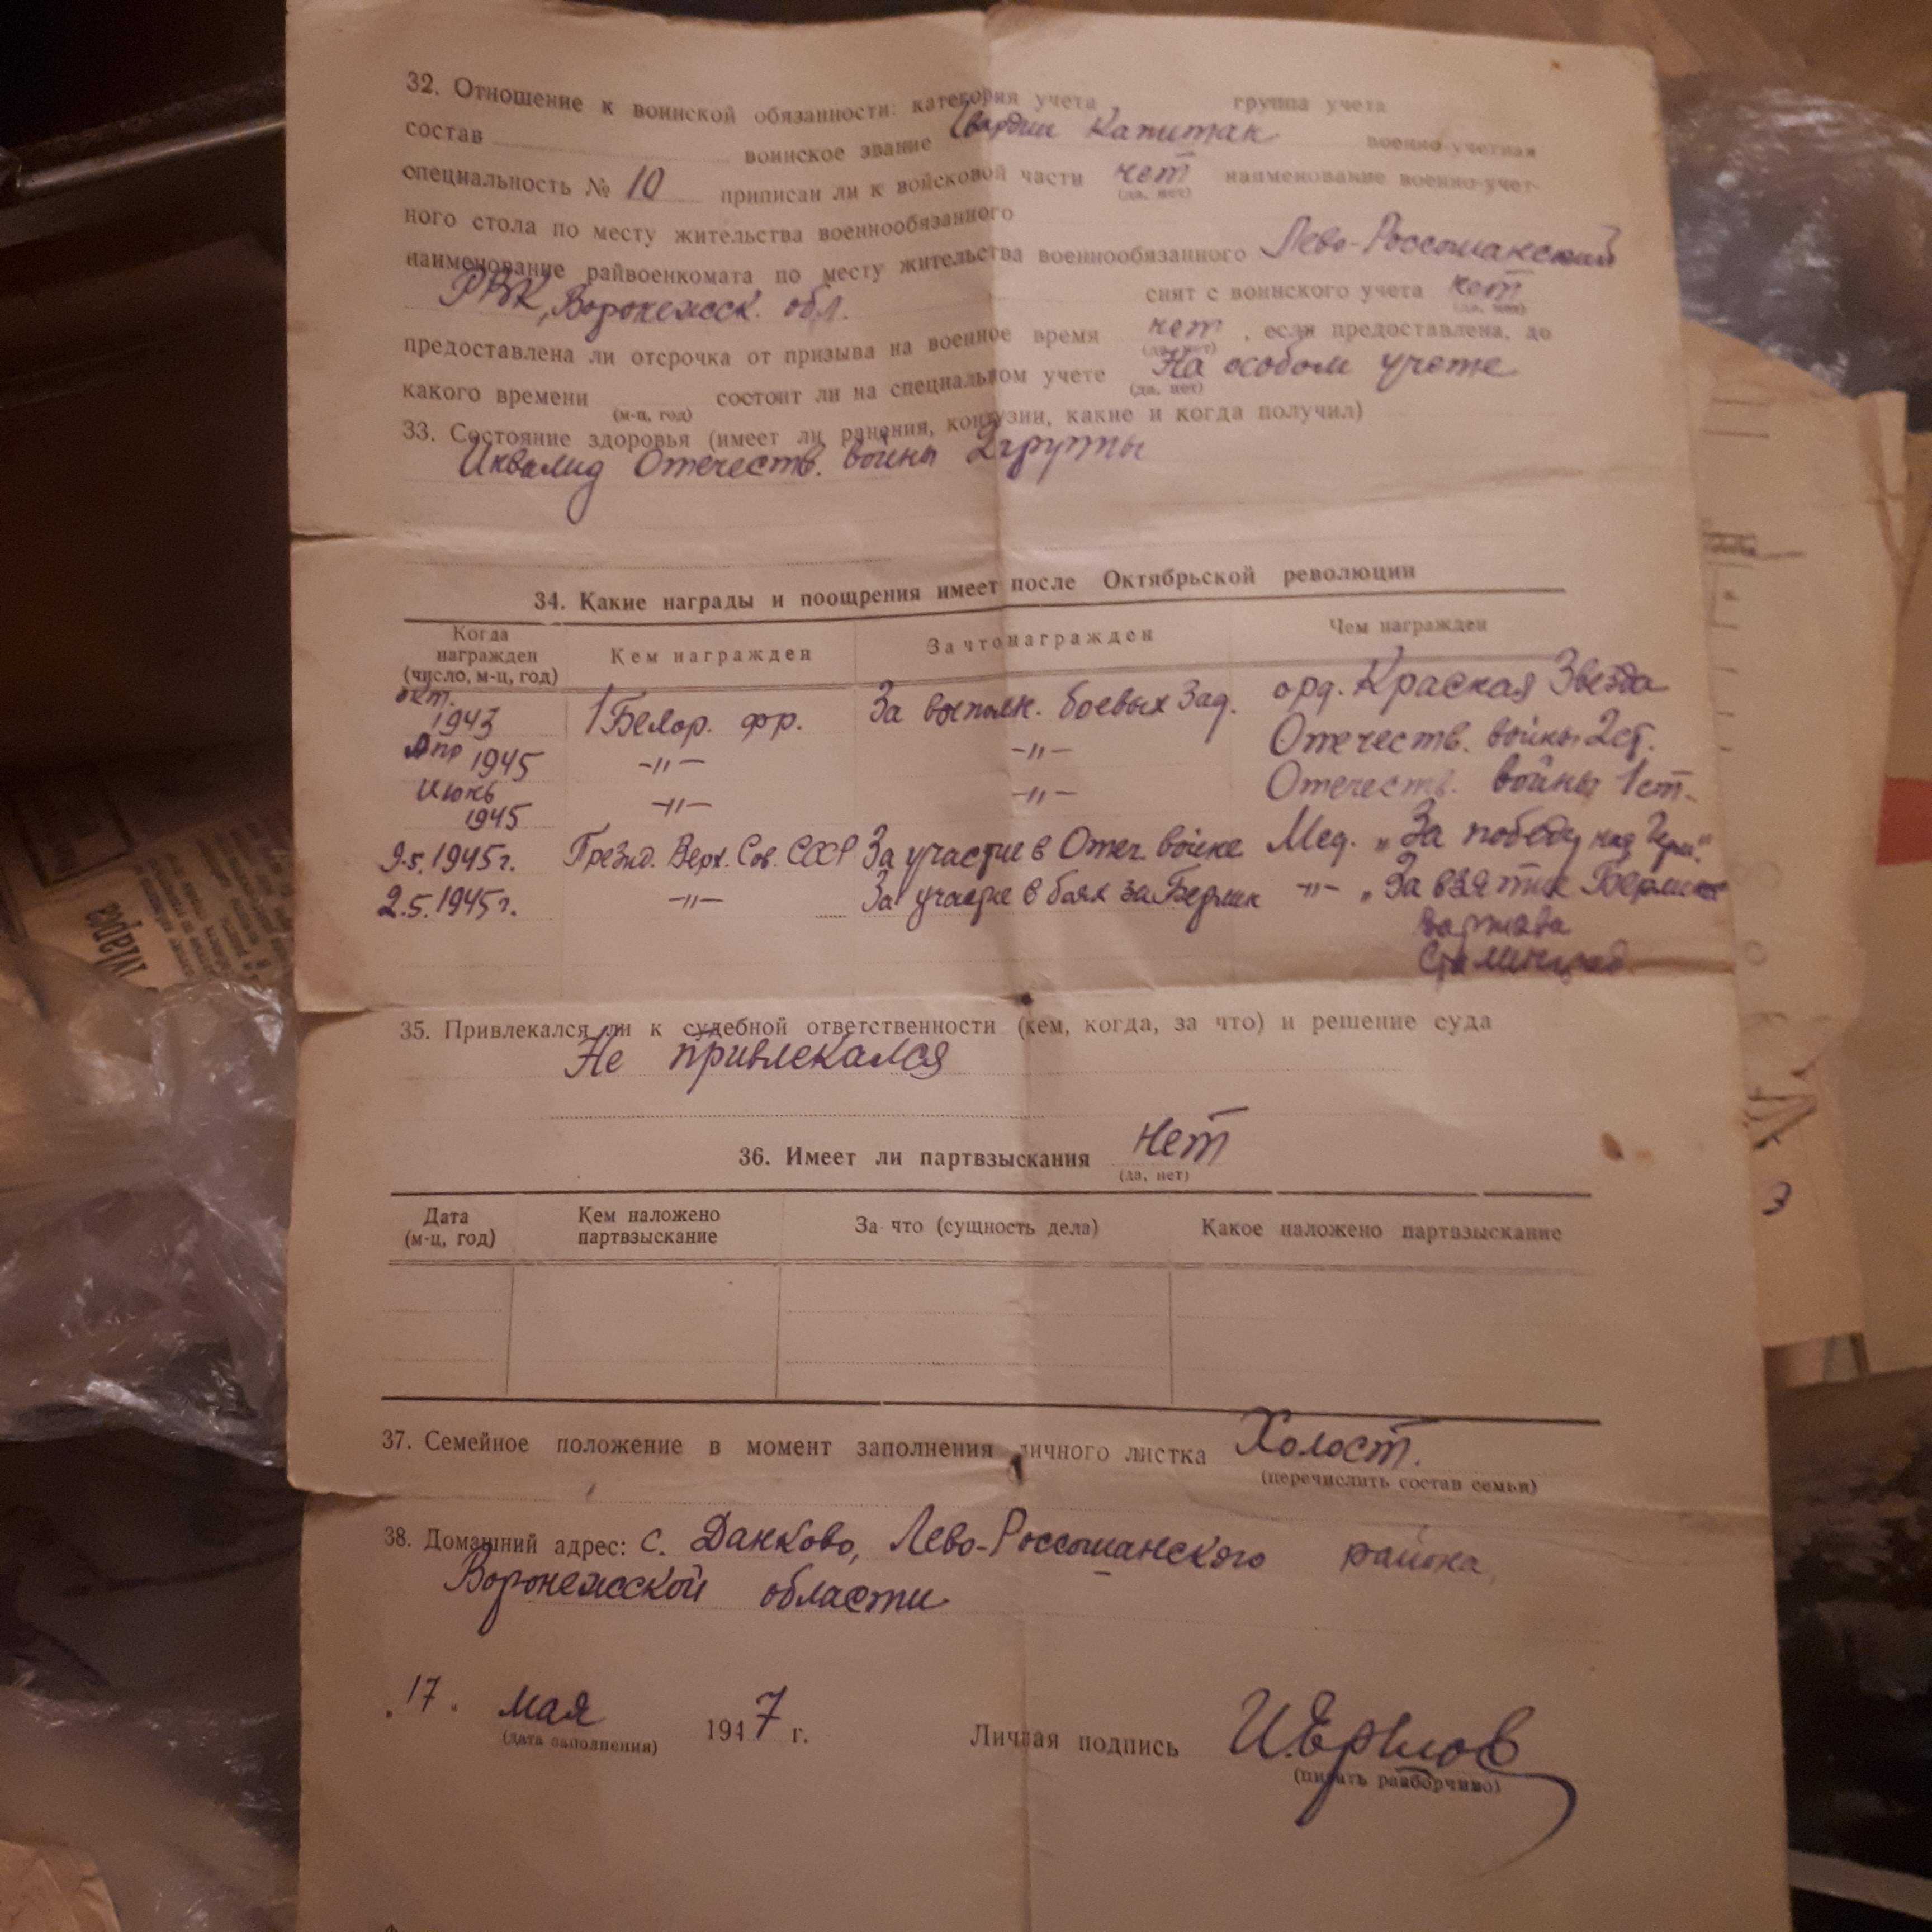 32. Отношение к воинской обязанности: категория учета группа учета
состав воинское звание Гвардии Капитан военно-учетная
специальность № 10 приписан ли к войсковой части нет (да, нет) наименование военно-учет-
ного стола по месту жительства военнообязанного
наименование райвоенкомата по месту жительства военнообязанного Лево-Россошанский
РВК, Воронежск. обл. снят с воинского учета нет (да, нет)
предоставлена ли отсрочка от призыва на военное время нет (да, нет), если предоставлена, до
какого времени (м-ц, год) состоит ли на специальном учете На особом учете (да, нет)
33. Состояние здоровья (имеет ли ранения, контузии, какие и когда получил)
Инвалид Отечеств. войны 2 группы
34. Какие награды и поощрения имеет после Октябрьской революции
Когда награжден (число, м-ц, год) Кем награжден За что награжден Чем награжден
окт. 1943 1 Белор. фр. За выполн. боевых зад. орд. Красная Звезда
Апр 1945 -"- -"- Отечеств. войны 2 ст.
Июнь 1945 -"- -"- Отечеств. войны 1 ст.
9.5.1945 г. Презид. Верх. Сов. СССР За участие в Отеч. войне Мед. „За победу над Герм."
2.5.1945 г. -"- За участие в боях за Берлин -"- „За взятие Берлина
Варшава
Сталинград
35. Привлекался ли к судебной ответственности (кем, когда, за что) и решение суда
Не привлекался
36. Имеет ли партвзыскания нет
(да, нет)
Дата (м-ц, год) Кем наложено партвзыскание За что (сущность дела) Какое наложено партвзыскание
37. Семейное положение в момент заполнения личного листка Холост.
(перечислить состав семьи)
38. Домашний адрес: с. Данково, Лево-Россошанского района,
Воронежской области
„17" мая 1947 г. Личная подпись
(дата заполнения) (писать разборчиво)